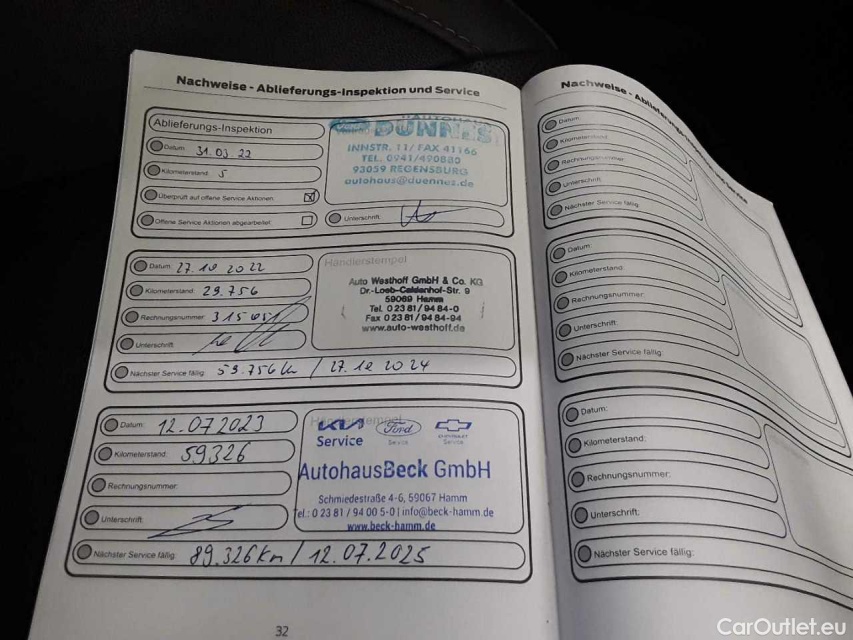 Nachweise - Ablieferungs-Inspektion und Service
Ablieferungs-Inspektion
Datum: 31.03.22
Kilometerstand: 5
Überprüft auf offene Service Aktionen
Offene Service Aktionen abgearbeitet
Unterschrift:
AUTOHAUS
DÜNNES
INNSTR. 11/ FAX 41166
TEL. 0941/490880
93059 REGENSBURG
autohaus@duennes.de
Datum: 27.10 2022
Kilometerstand: 29.756
Rechnungsnummer: 315451
Unterschrift:
Nächster Service fällig: 59.756 km / 27.10 2024
Händlerstempel
Auto Westhoff GmbH & Co. KG
Dr.-Loeb-Caldenhof-Str. 9
59069 Hamm
Tel. 0 23 81 / 94 84-0
Fax 0 23 81 / 94 84-94
www.auto-westhoff.de
Datum: 12.07.2023
Kilometerstand: 59326
Rechnungsnummer:
Unterschrift:
Nächster Service fällig: 89.326km / 12.07.2025
Händlerstempel
KIA Ford CHEVROLET
Service Service Service
AutohausBeck GmbH
Schmiedestraße 4-6, 59067 Hamm
Tel.: 0 23 81 / 94 00 5-0 | info@beck-hamm.de
www.beck-hamm.de
32
Nachweise - Ablieferungs-Inspektion und Service
Datum:
Kilometerstand:
Rechnungsnummer:
Unterschrift:
Nächster Service fällig:
Datum:
Kilometerstand:
Rechnungsnummer:
Unterschrift:
Nächster Service fällig:
Datum:
Kilometerstand:
Rechnungsnummer:
Unterschrift:
Nächster Service fällig:
CarOutlet.eu